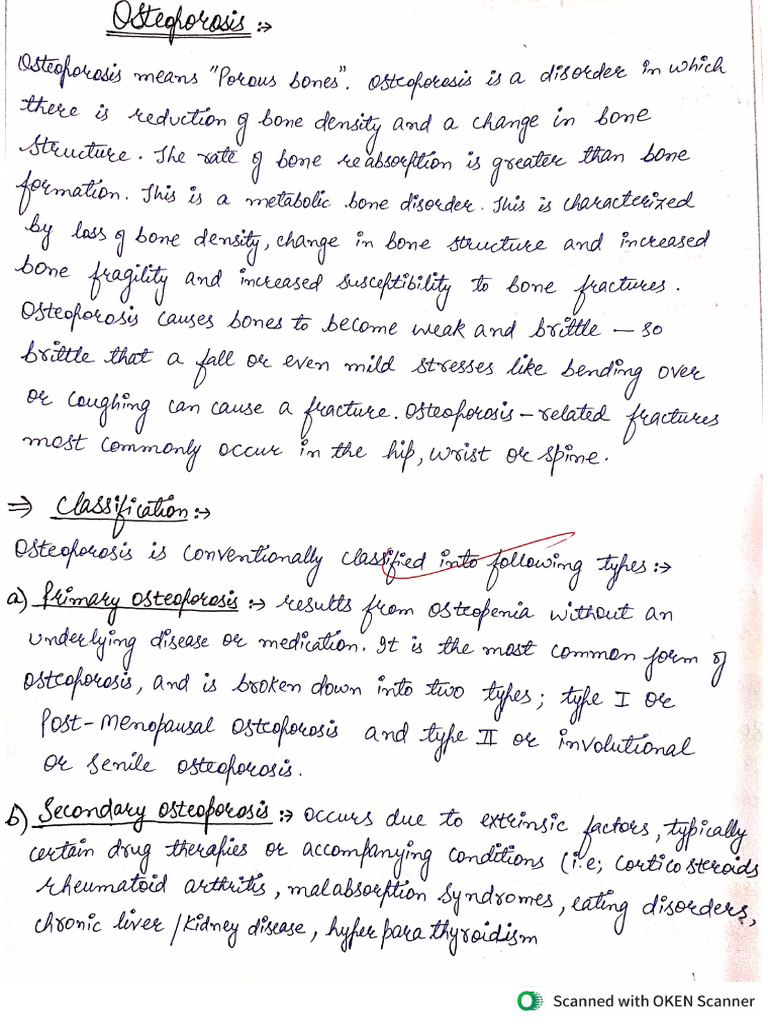 Osteoporosis :→
Osteoporosis means "Porous bones". Osteoporosis is a disorder in which
there is reduction of bone density and a change in bone
structure. The rate of bone reabsorption is greater than bone
formation. This is a metabolic bone disorder. This is characterized
by loss of bone density, change in bone structure and increased
bone fragility and increased susceptibility to bone fractures.
Osteoporosis causes bones to become weak and brittle – so
brittle that a fall or even mild stresses like bending over
or coughing can cause a fracture. Osteoporosis – related fractures
most commonly occur in the hip, wrist or spine.
⇒ Classification :→
Osteoporosis is conventionally classified into following types :→
a) Primary osteoporosis :→ results from osteopenia without an
underlying disease or medication. It is the most common form of
osteoporosis, and is broken down into two types; type I or
Post-menopausal osteoporosis and type II or involutional
or senile osteoporosis.
b) Secondary osteoporosis :→ occurs due to extrinsic factors, typically
certain drug therapies or accompanying conditions (i.e; corticosteroids
rheumatoid arthritis, malabsorption syndromes, eating disorders,
chronic liver / kidney disease, hyper para thyroidism
Scanned with OKEN Scanner